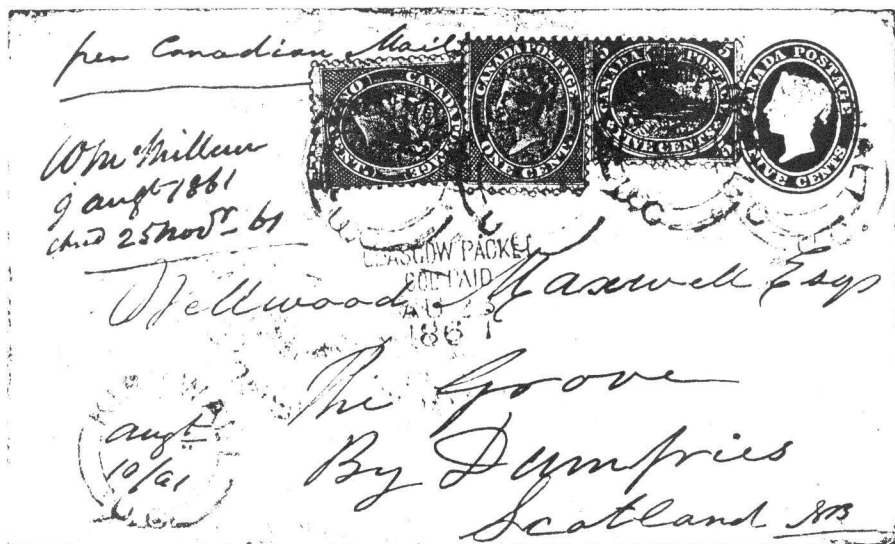 per Canadian Mail
CANADA POSTAGE
ONE CENT.
CANADA POSTAGE
ONE CENT.
5 5
CANADA POSTAGE
FIVE CENTS.
CANADA POSTAGE
FIVE CENTS
Wm
9 augt 1861
25 Novr 61
GLASGOW PACKET
PAID
AU 23
1861
Wellwood Maxwell Esqr
The Grove
augt
10/61
By Dumfries
Scotland NB